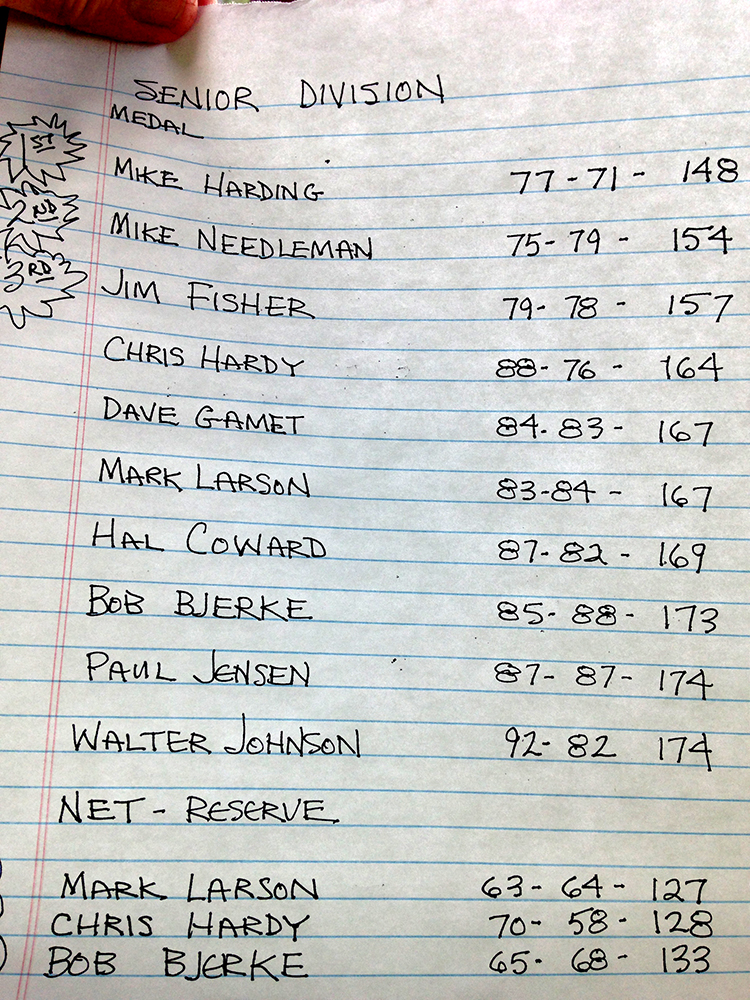 SENIOR DIVISION
MEDAL
1ST MIKE HARDING 77 - 71 - 148
2ND MIKE NEEDLEMAN 75 - 79 - 154
3RD JIM FISHER 79 - 78 - 157
CHRIS HARDY 88 - 76 - 164
DAVE GAMET 84 - 83 - 167
MARK LARSON 83 - 84 - 167
HAL COWARD 87 - 82 - 169
BOB BJERKE 85 - 88 - 173
PAUL JENSEN 87 - 87 - 174
WALTER JOHNSON 92 - 82 174
NET - RESERVE
MARK LARSON 63 - 64 - 127
CHRIS HARDY 70 - 58 - 128
BOB BJERKE 65 - 68 - 133